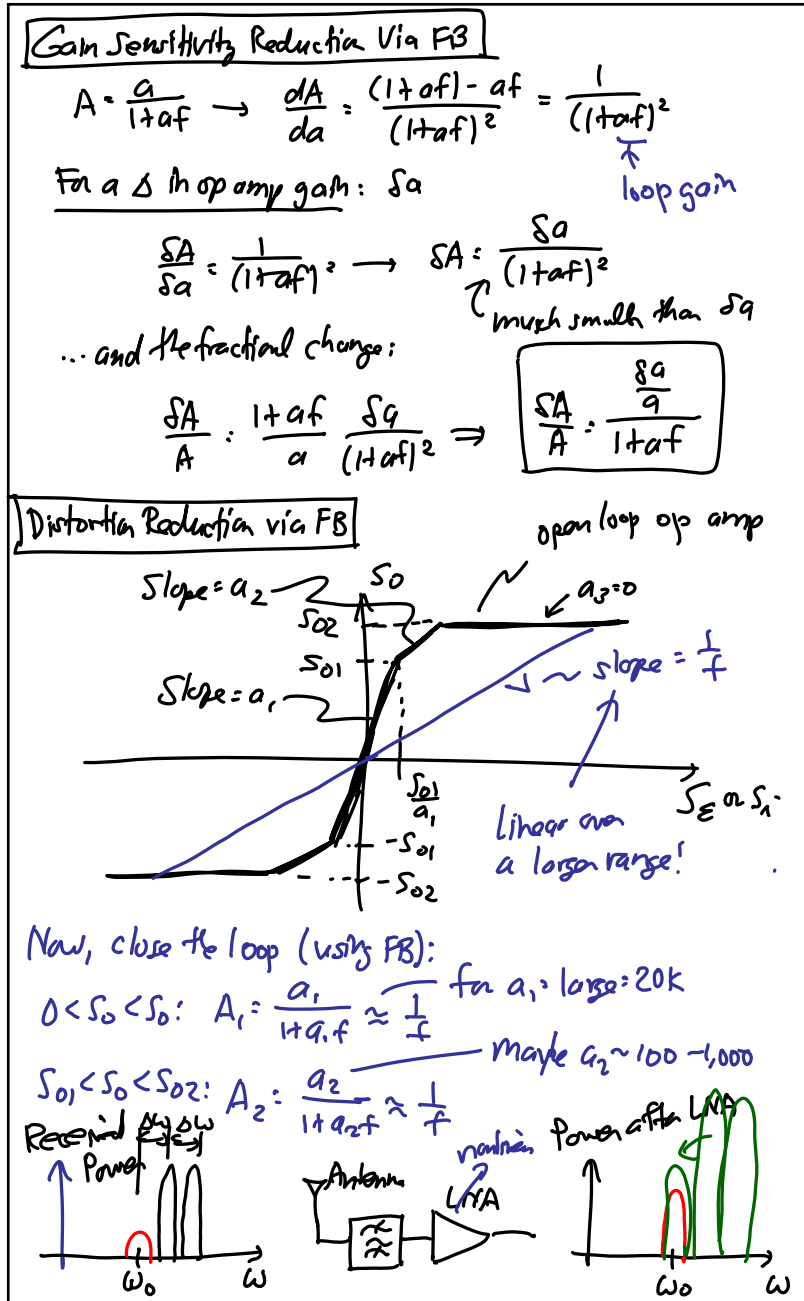 Gain Sensitivity Reduction Via FB
A = a/(1+af) → dA/da = ((1+af) - af)/(1+af)² = 1/(1+af)²
loop gain
For a Δ in op amp gain: δa
δA/δa = 1/(1+af)² → δA = δa/(1+af)²
much smaller than δa
... and the fractional change:
δA/A = (1+af)/a δa/(1+af)² ⇒ δA/A = (δa/a)/(1+af)
Distortion Reduction via FB
open loop op amp
Slope = a₂
S₀
a₃=0
S₀₂
S₀₁
slope = 1/f
Slope = a₁
S₀₁/a₁
Sε or Sᵢ
Linear over
a larger range!
-S₀₁
-S₀₂
Now, close the loop (using FB):
for a₁ = large = 20K
0 < S₀ < S₀: A₁ = a₁/(1+a₁f) ≈ 1/f
maybe a₂ ~ 100 - 1,000
S₀₁ < S₀ < S₀₂: A₂ = a₂/(1+a₂f) ≈ 1/f
Received Power
Δω Δω
ω₀ ω
Antenna
LNA
Power after LNA
ω₀ ω